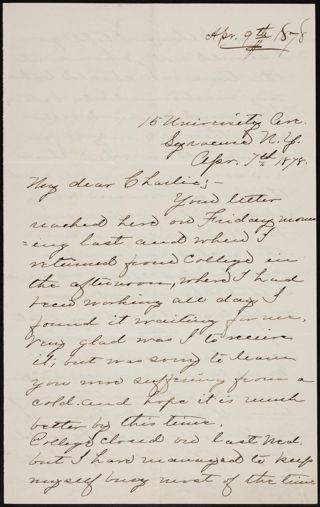 Apr. 9th 1878
15 University Ave.
Syracuse N.Y.
Apr. 7th 1878.
My dear Charlie;-
Your letter
reached here on Friday morn-
=ing last and when I
returned from College in
the afternoon, where I had
been working all day, I
found it waiting for me.
Very glad was I to receive
it, but was sorry to learn
you were suffering from a
cold. and hope it is much
better by this time.
College closed on last Wed.
but I have managed to keep
myself busy most of the time